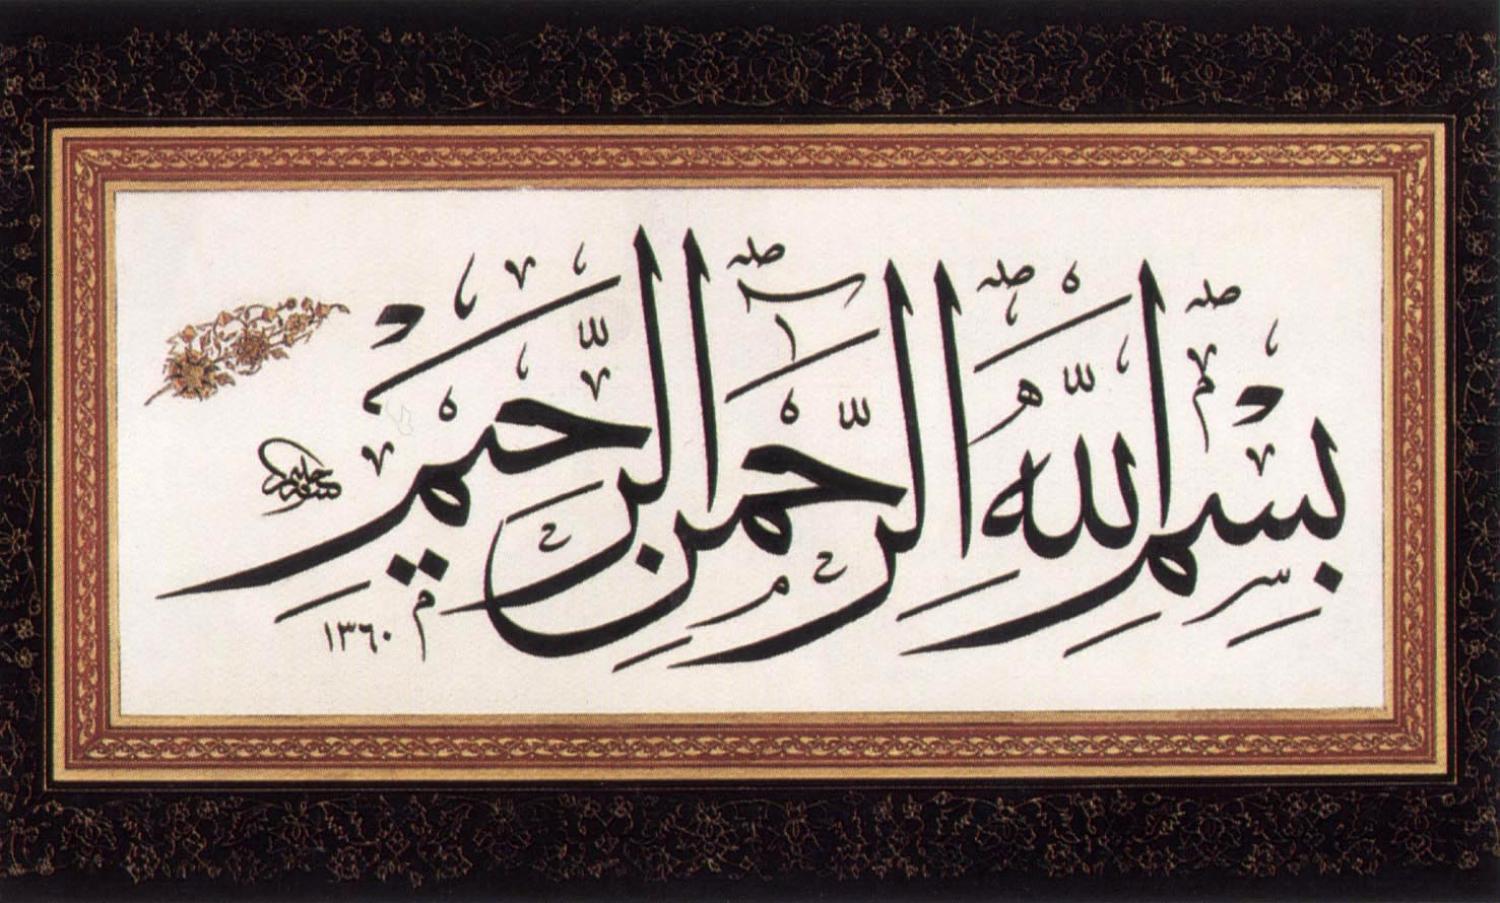 بِسْمِ اللّٰهِ الرَّحْمٰنِ الرَّحِيمِ
حامد
١٣٦٠